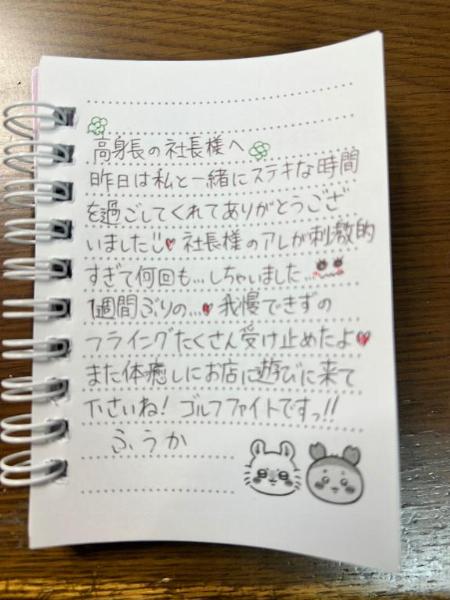 高身長の社長様へ
昨日は私と一緒にステキな時間
を過ごしてくれてありがとうござ
いました♥社長様のアレが刺激的
すぎて何回も…しちゃいました…
1週間ぶりの…♥我慢できずの
フライングたくさん受け止めたよ♥
また体癒しにお店に遊びに来て
下さいね！ゴルフファイトですっ!!
ふうか